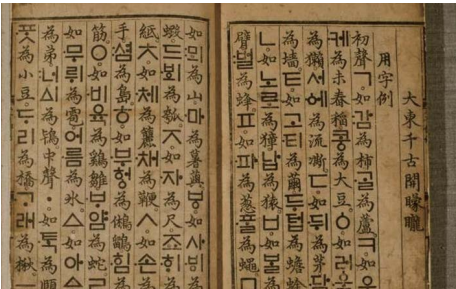 大東千古開矇矓
用字例
初聲ㄱ。如감為柿。ᄀᆞᆯ為蘆。ㅋ。如우
케為未舂稻。콩為大豆。ㆁ。如러
為獺。서에為流凘。ㄷ。如뒤為茅。담
為墻。ㅌ。如고티為繭。두텁為蟾蜍
ㄴ。如노로為獐。납為猿。ㅂ。如ᄇᆞᆯ
臂。벌為蜂。ㅍ。如파為葱。ᄑᆞᆯ為蠅
如뫼為山。마為薯藇。ㅸ。如사ᄫᅵ
蝦。드ᄫᅴ為瓠。ㅈ。如자為尺。죠ᄒᆡ
紙。ㅊ。如체為籭。채為鞭。ㅅ。如손
手。셤為島。ㅎ。如부헝為鵂鶹。힘
筋。ㅇ。如비육為鷄雛。ᄇᆞ얌為蛇
如무뤼為雹。어름為氷。ㅿ。如아ᅀᆞ
為弟。너ᅀᅵ為鴇。中聲ㆍ。如ᄐᆞᆨ為頤
ᄑᆞᆺ為小豆。ᄃᆞ리為橋。ᄀᆞ래為楸